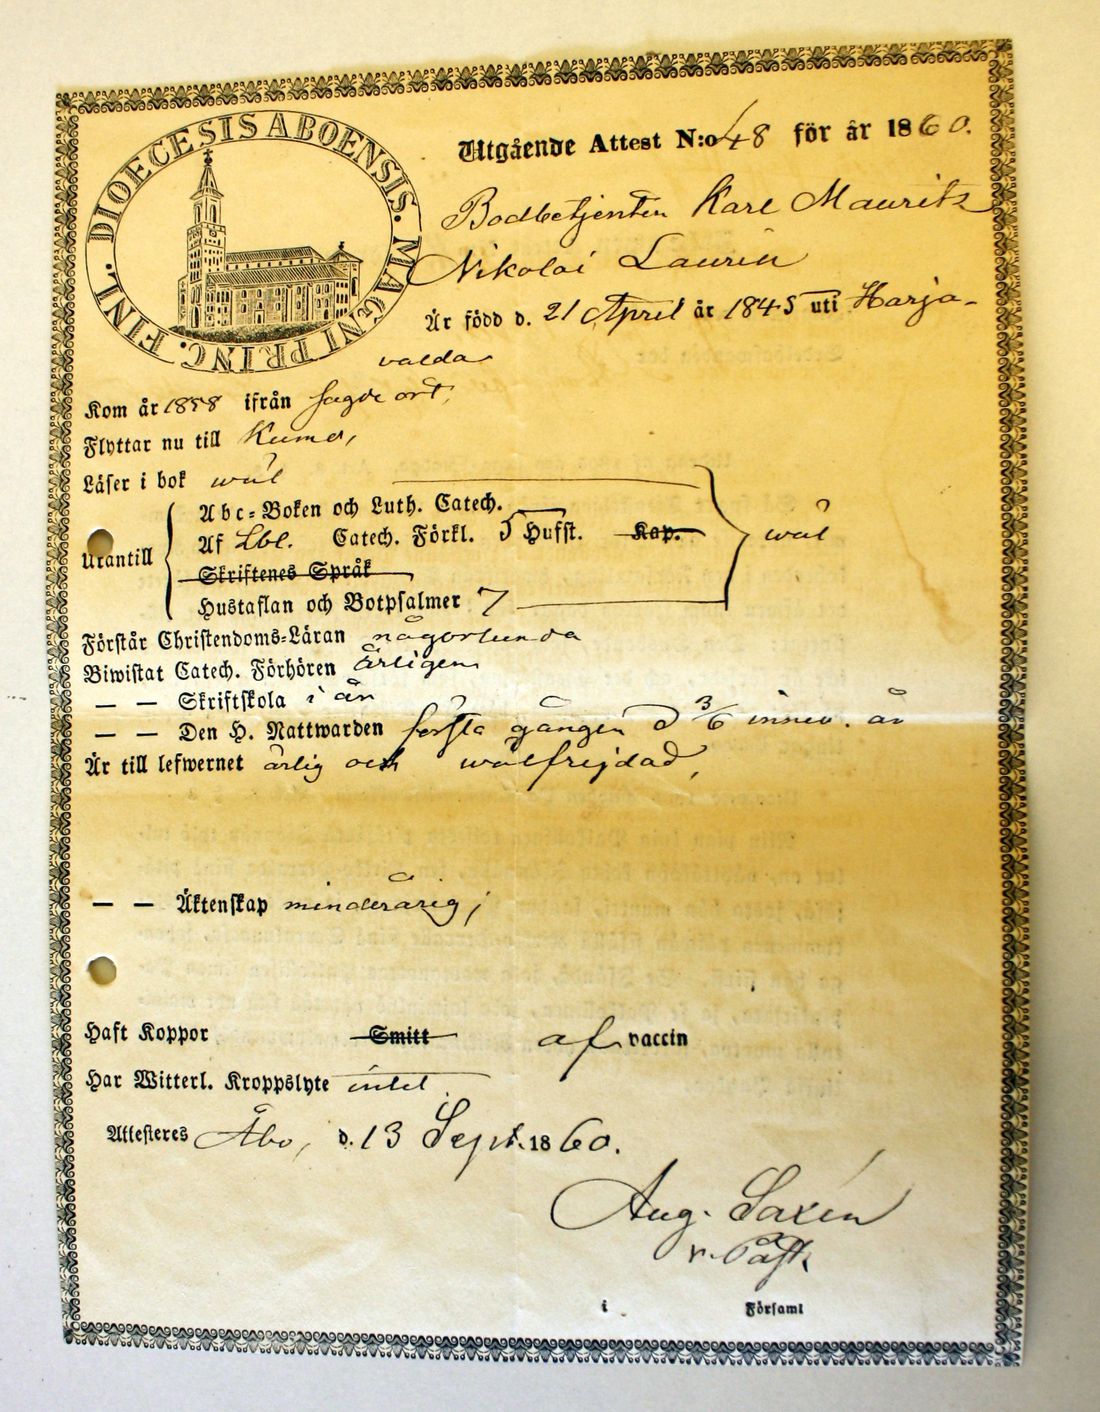 DIOECESIS ABOENSIS. MAGNI PRINC. FINL.
Utgående Attest N:o 48 för år 1860.
Bodbetjenten Karl Mauritz
Nikolai Laurin
Är född d. 21 April år 1845 uti Harja-
valda
Kom år 1858 ifrån sagde ort,
Flyttar nu till Kumo,
Läser i bok wäl
Utantill
Abc-Boken och Luth. Catech.
Af Lbl. Catech. Förkl. 5 Hufst. Kap. wäl
Skriftenes Språk
Hustaflan och Botpsalmer 7
Förstår Christendoms-Läran någorlunda
Biwistat Catech. Förhören årligen
— — Skriftskola i år
— — Den H. Nattwarden första gången d 3/6 innev. år
Är till lefwernet ärlig och wälfrejdad,
— — Äktenskap minderårig;
Haft Koppor Smitt af vaccin
Har Witterl. Kroppslyte intet
Attesteres Åbo, d. 13 Sept. 1860.
Aug. Saxén
v. Past.
i Församl